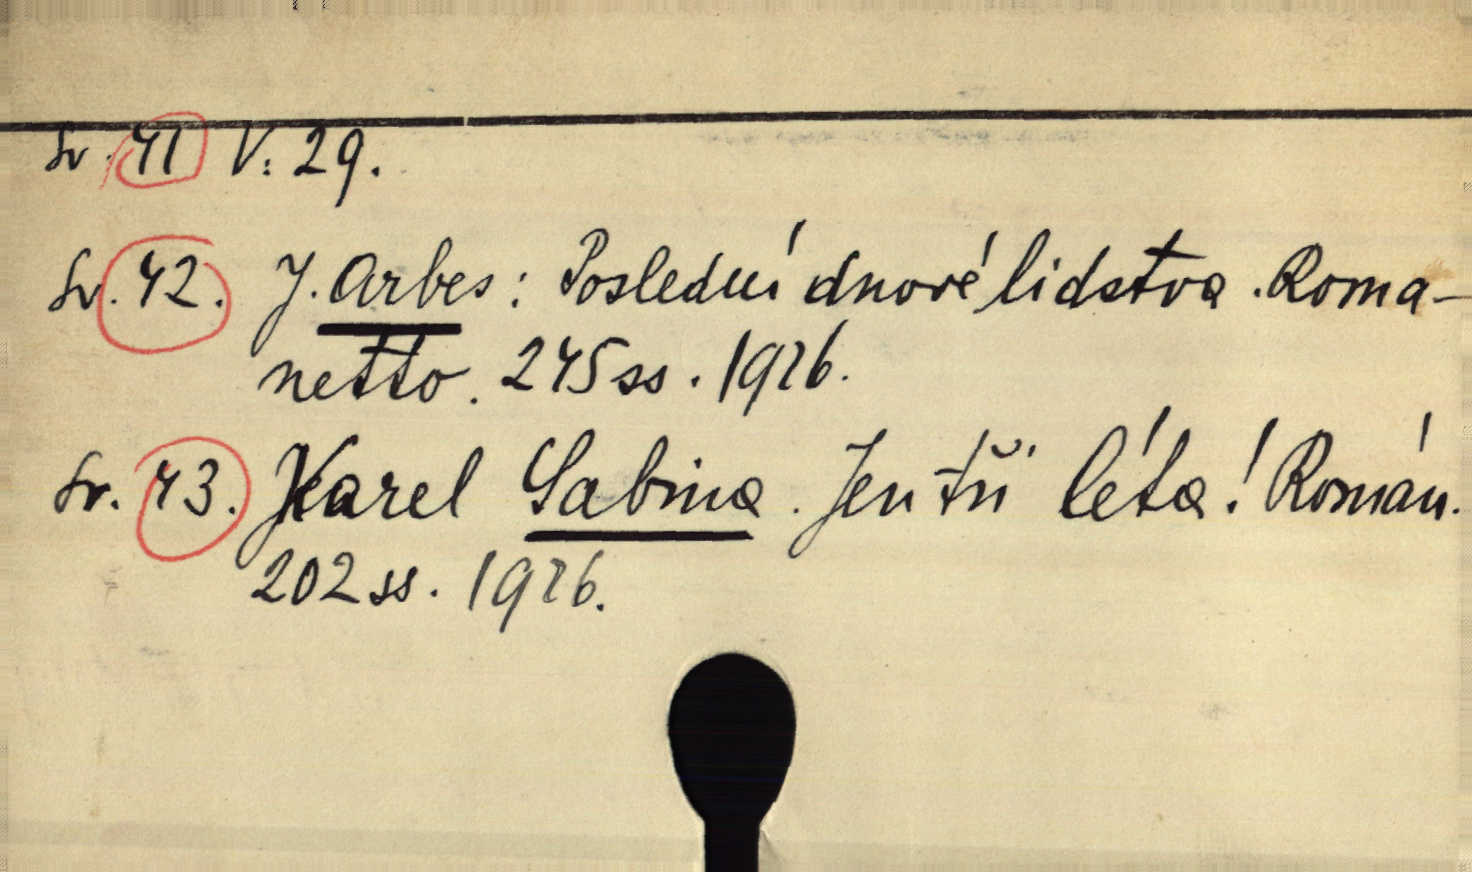 Sv. 41 V: 29.
Sv. 42. J. Arbes: Poslední dnové lidstva. Roma-
netto. 245 ss. 1926.
Sv. 43. Karel Sabina. Jen tři léta! Román.
202 ss. 1926.